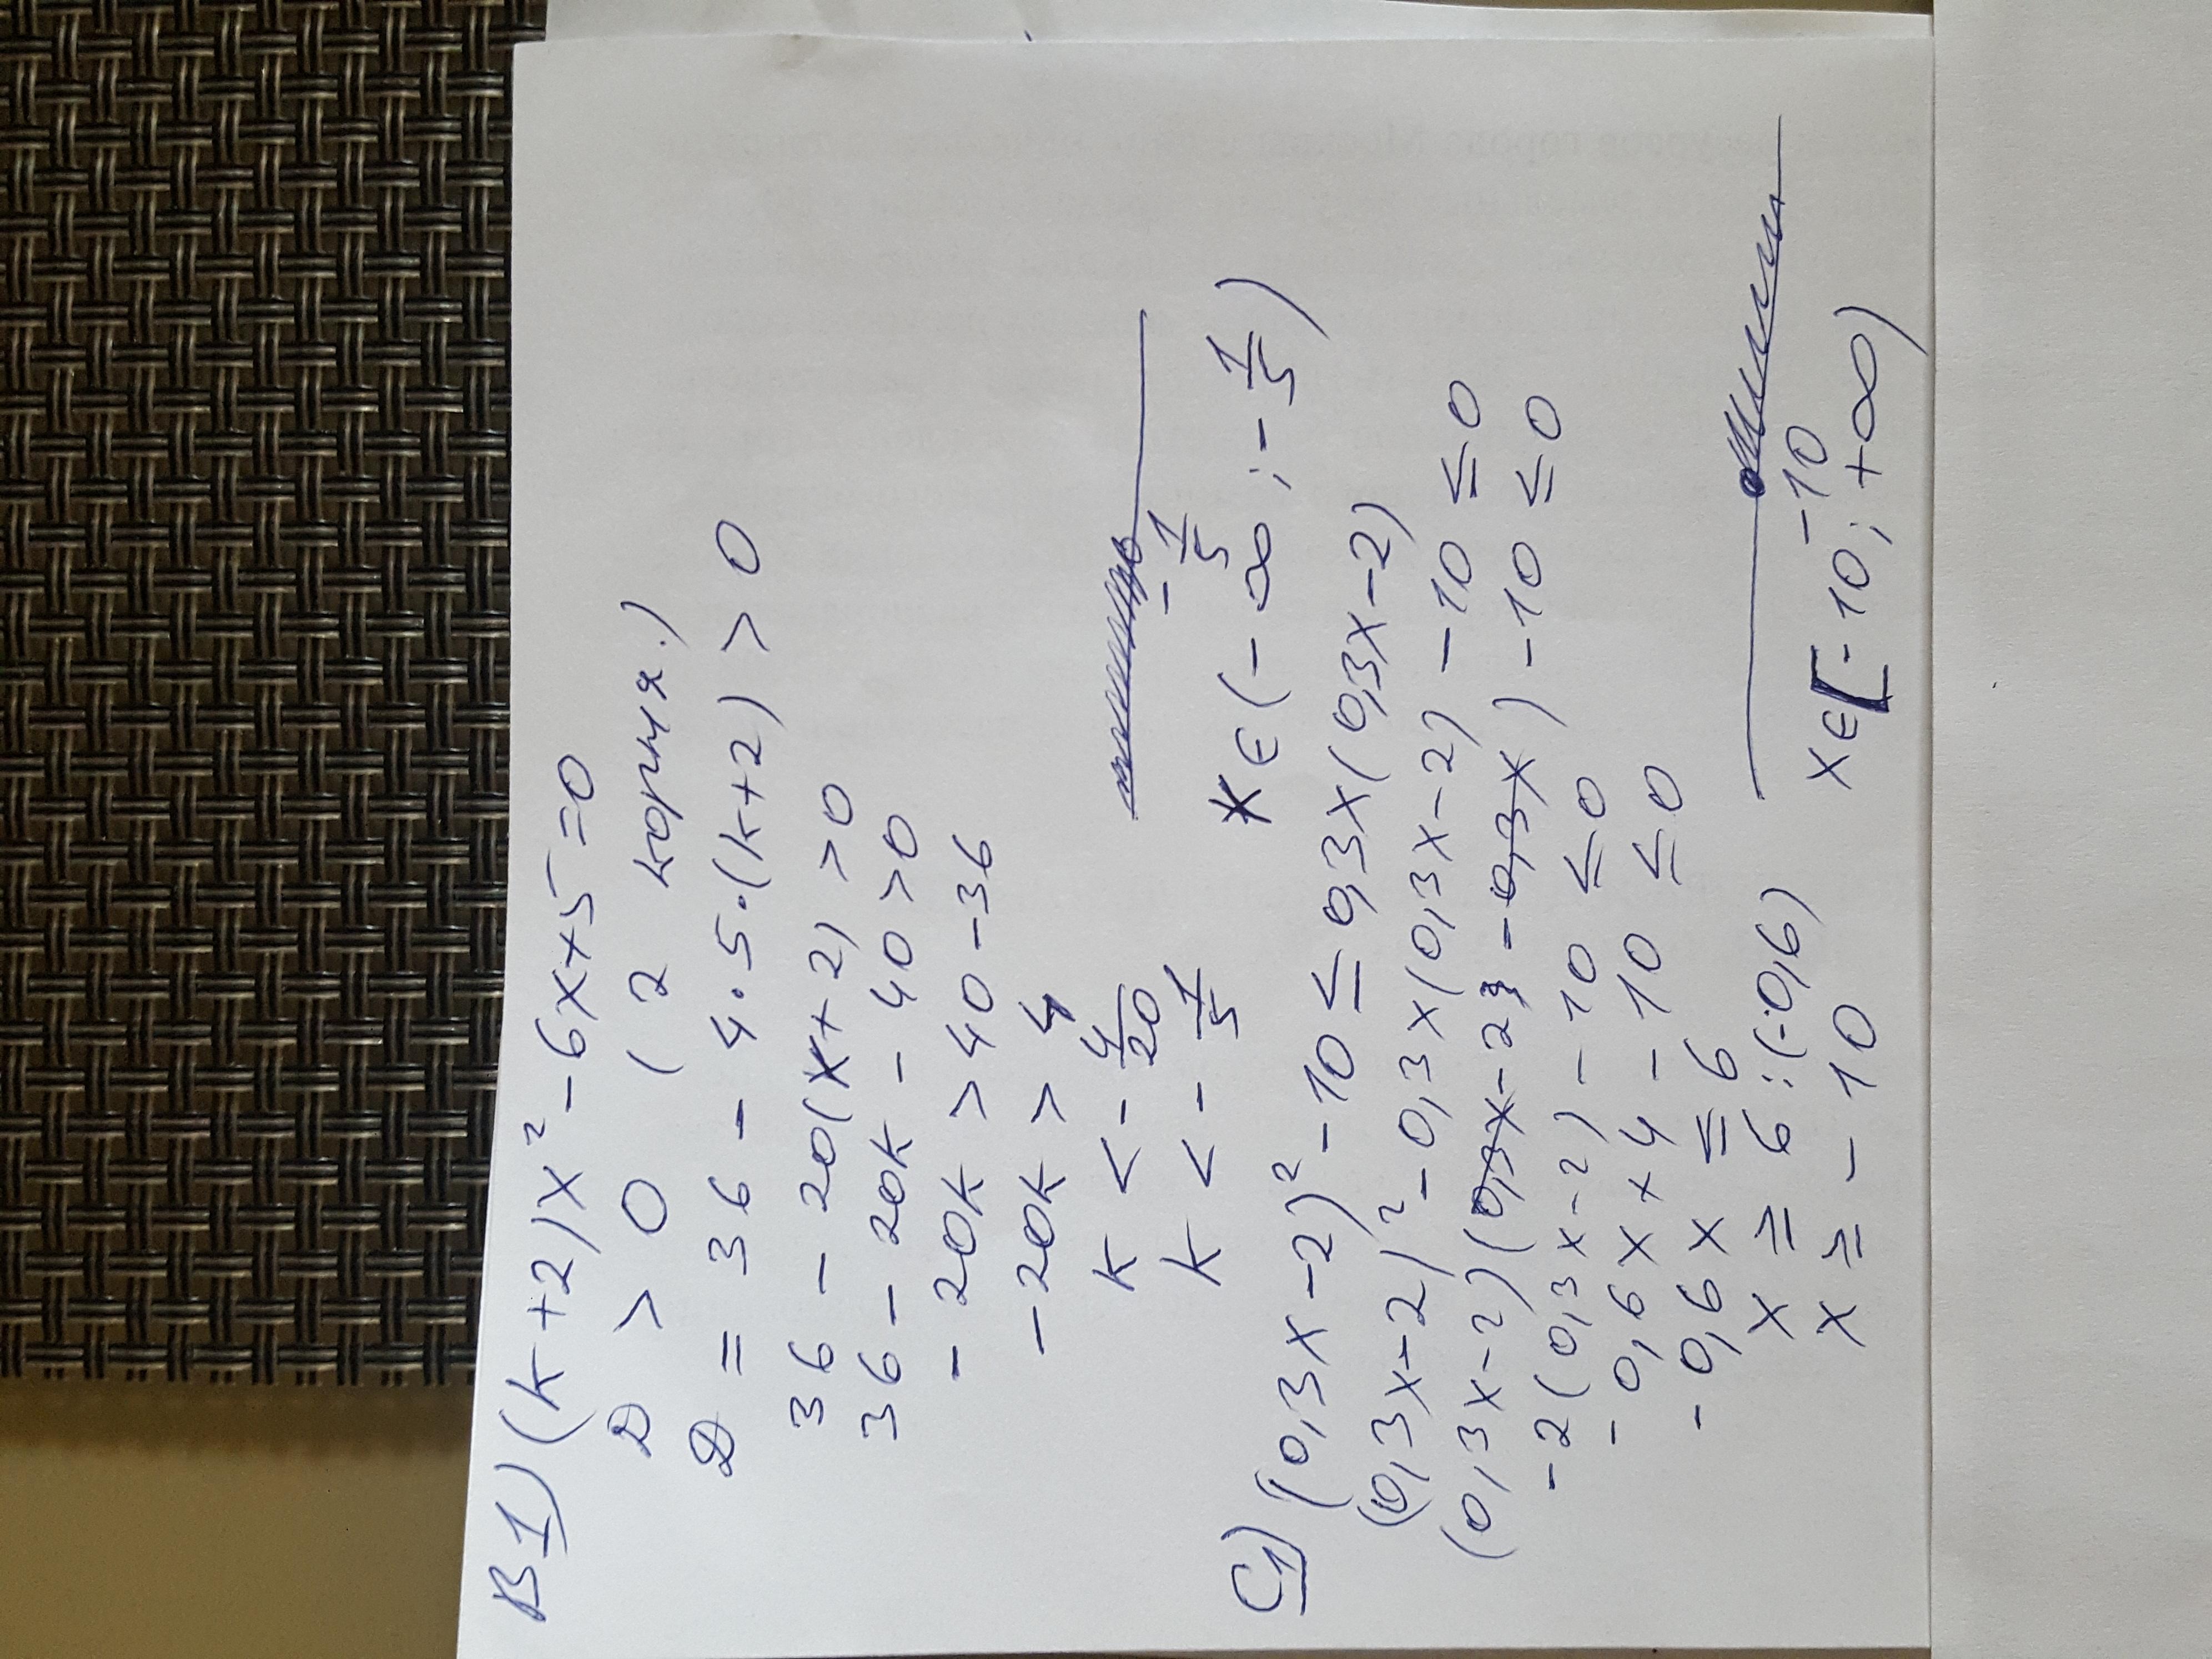 В1) (k+2)x² - 6x+5=0
D > 0 ( 2 корня.)
D = 36 - 4·5·(k+2) > 0
36 - 20(k+2) >0
36 - 20k - 40>0
- 20k > 40-36
-20k > 4
k < - 4/20
k < - 1/5
- 1/5
k ∈ (-∞ ; - 1/5)
C1) (0,3x-2)² - 10 ≤ 0,3x(0,3x-2)
(0,3x-2)² - 0,3x(0,3x-2) - 10 ≤ 0
(0,3x-2)(0,3x-2 - 0,3x) - 10 ≤ 0
-2(0,3x-2) - 10 ≤ 0
- 0,6x + 4 - 10 ≤ 0
- 0,6x ≤ 6
x ≥ 6:(-0,6)
x ≥ - 10
-10
x∈[-10; +∞)